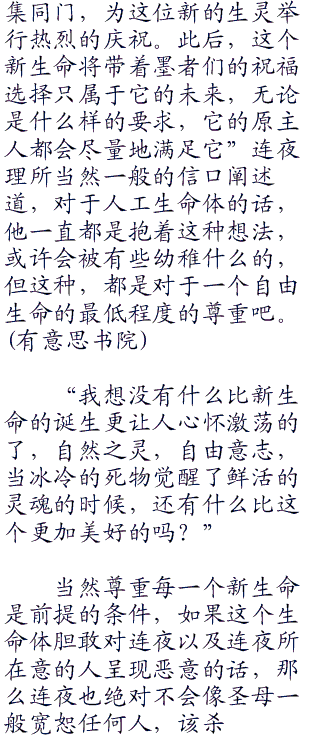 集同门，为这位新的生灵举
行热烈的庆祝。此后，这个
新生命将带着墨者们的祝福
选择只属于它的未来，无论
是什么样的要求，它的原主
人都会尽量地满足它”连夜
理所当然一般的信口阐述
道，对于人工生命体的话，
他一直都是抱着这种想法，
或许会被有些幼稚什么的，
但这种，都是对于一个自由
生命的最低程度的尊重吧。
(有意思书院)
“我想没有什么比新生
命的诞生更让人心怀激荡的
了，自然之灵，自由意志，
当冰冷的死物觉醒了鲜活的
灵魂的时候，还有什么比这
个更加美好的吗？”
当然尊重每一个新生命
是前提的条件，如果这个生
命体胆敢对连夜以及连夜所
在意的人呈现恶意的话，那
么连夜也绝对不会像圣母一
般宽恕任何人，该杀